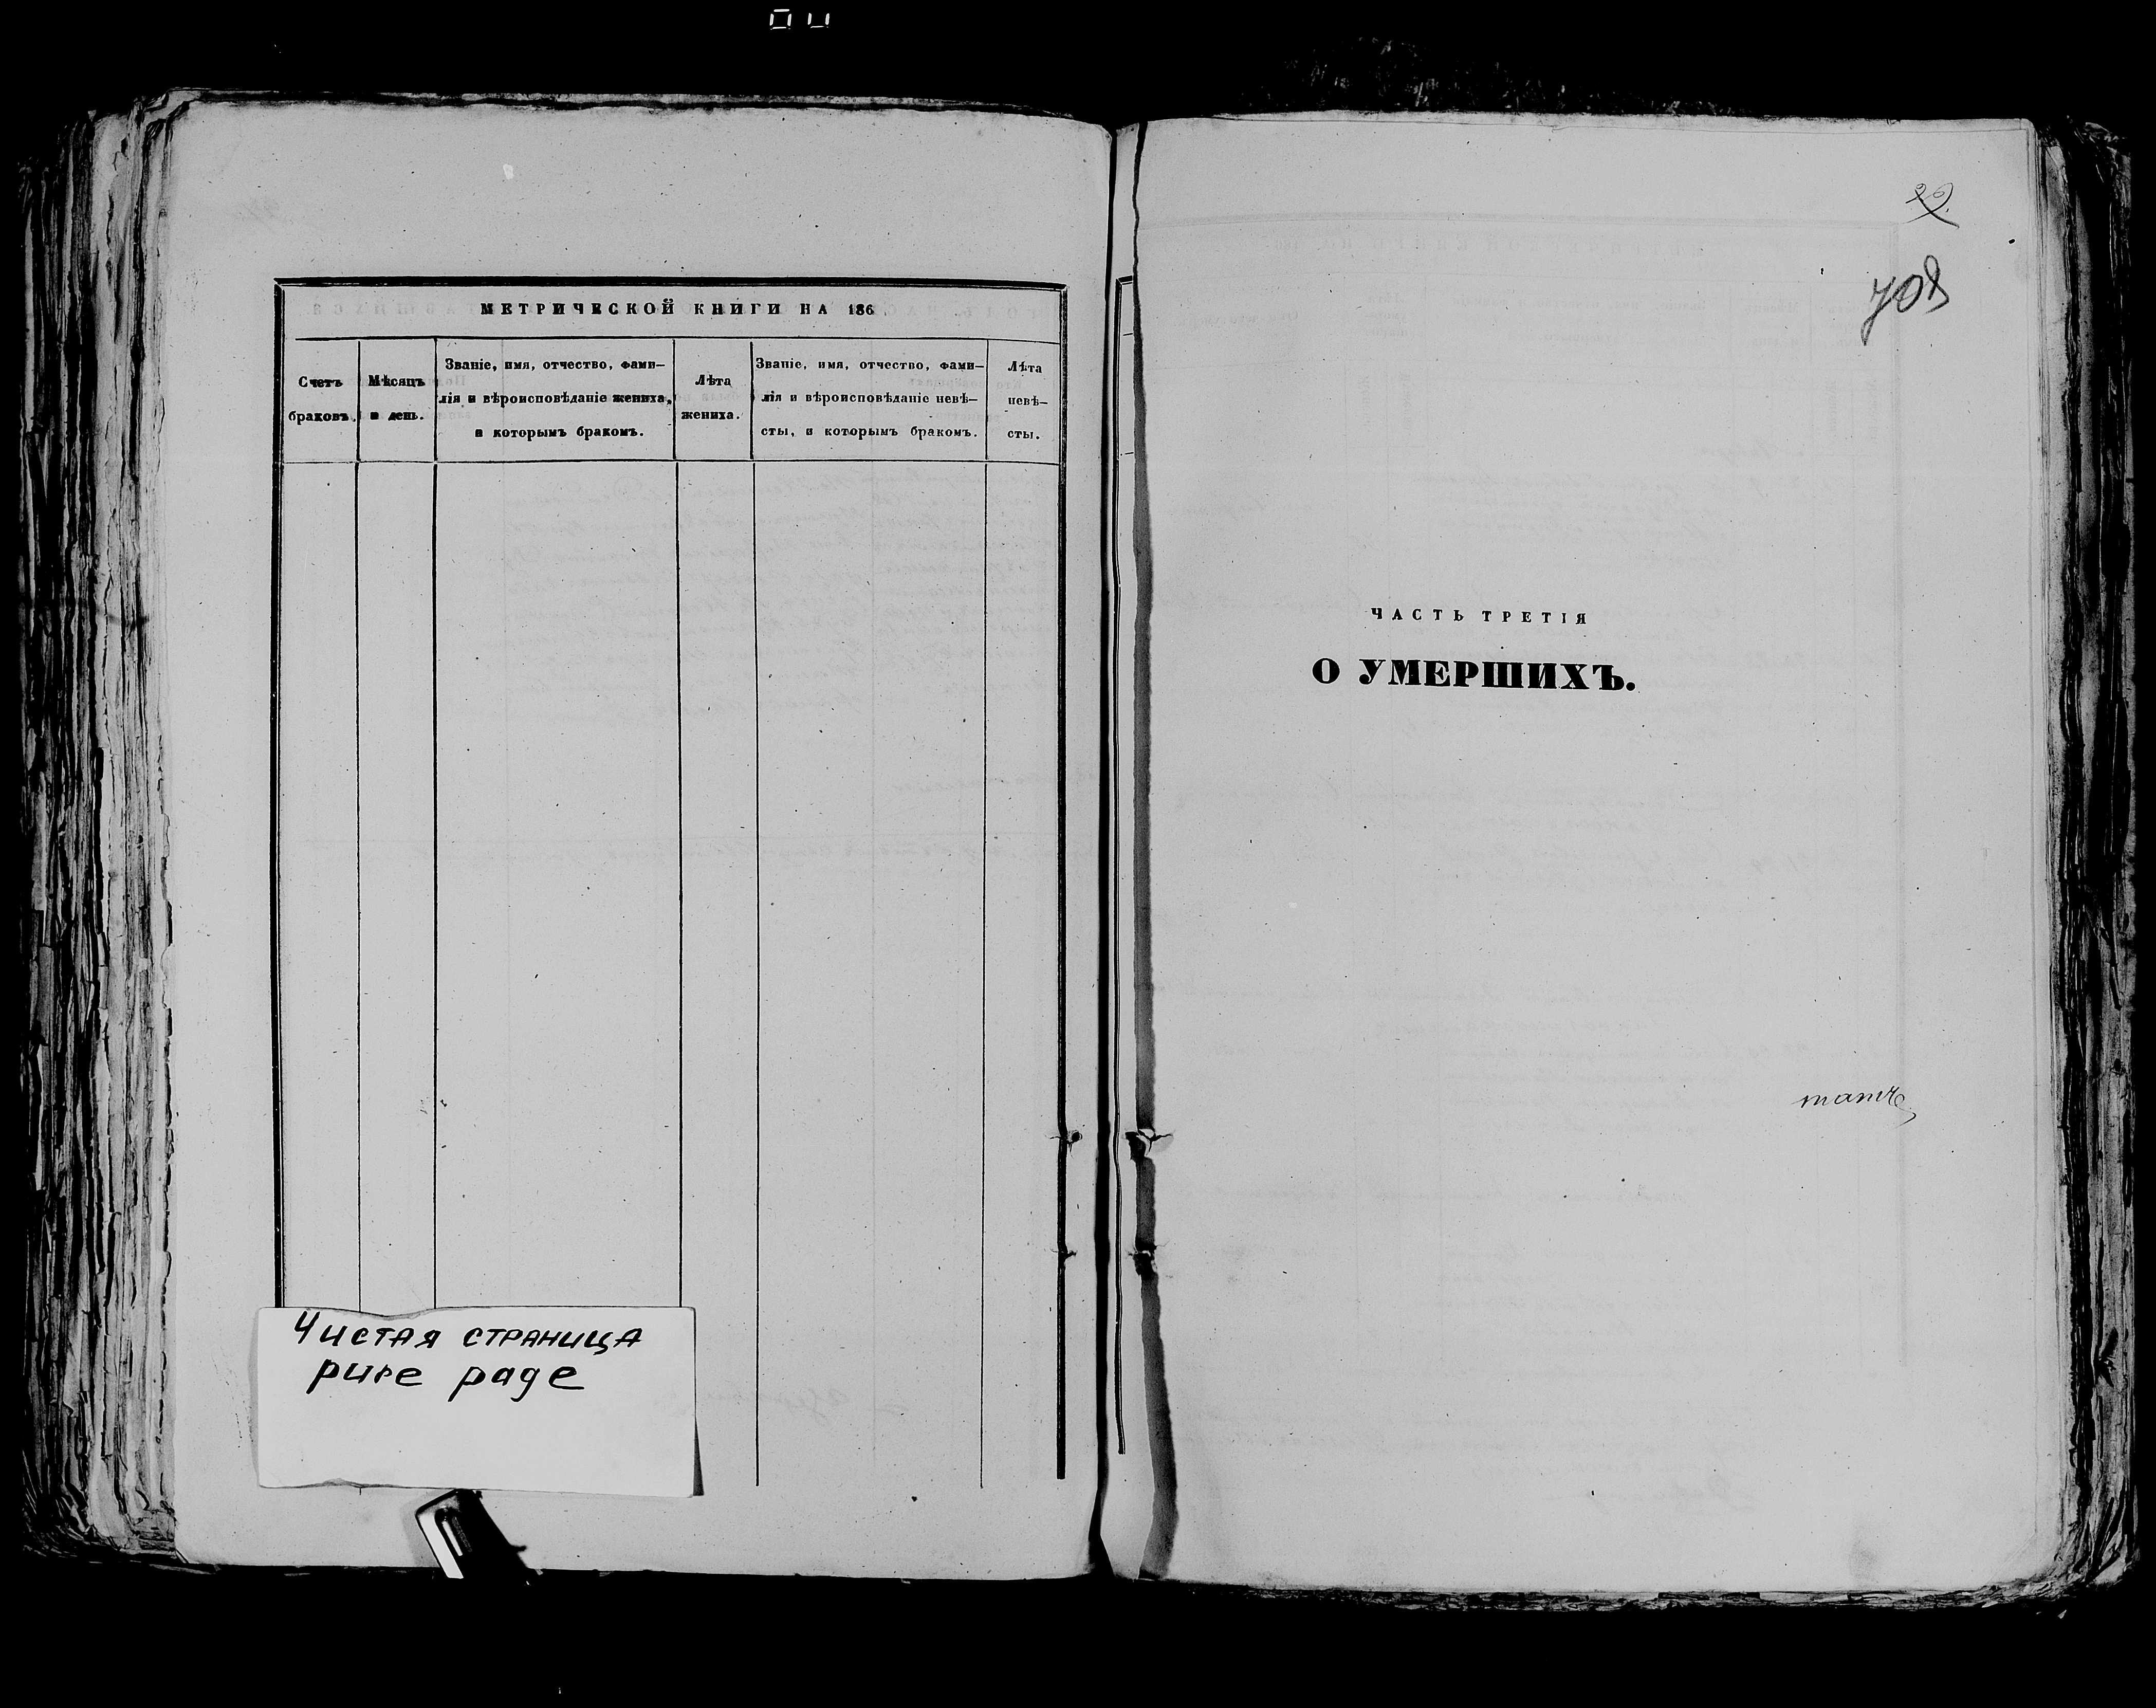 МЕТРИЧЕСКОЙ КНИГИ НА 186
Счетъ
браковъ.
Мѣсяцъ
и день.
Званіе, имя, отчество, фами-
лія и вѣроисповѣданіе жениха,
и которымъ бракомъ.
Лѣта
жениха.
Званіе, имя, отчество, фами-
лія и вѣроисповѣданіе невѣ-
сты, и которымъ бракомъ.
Лѣта
невѣ-
сты.
Чистая страница
pure page
708
ЧАСТЬ ТРЕТІЯ
О УМЕРШИХЪ.